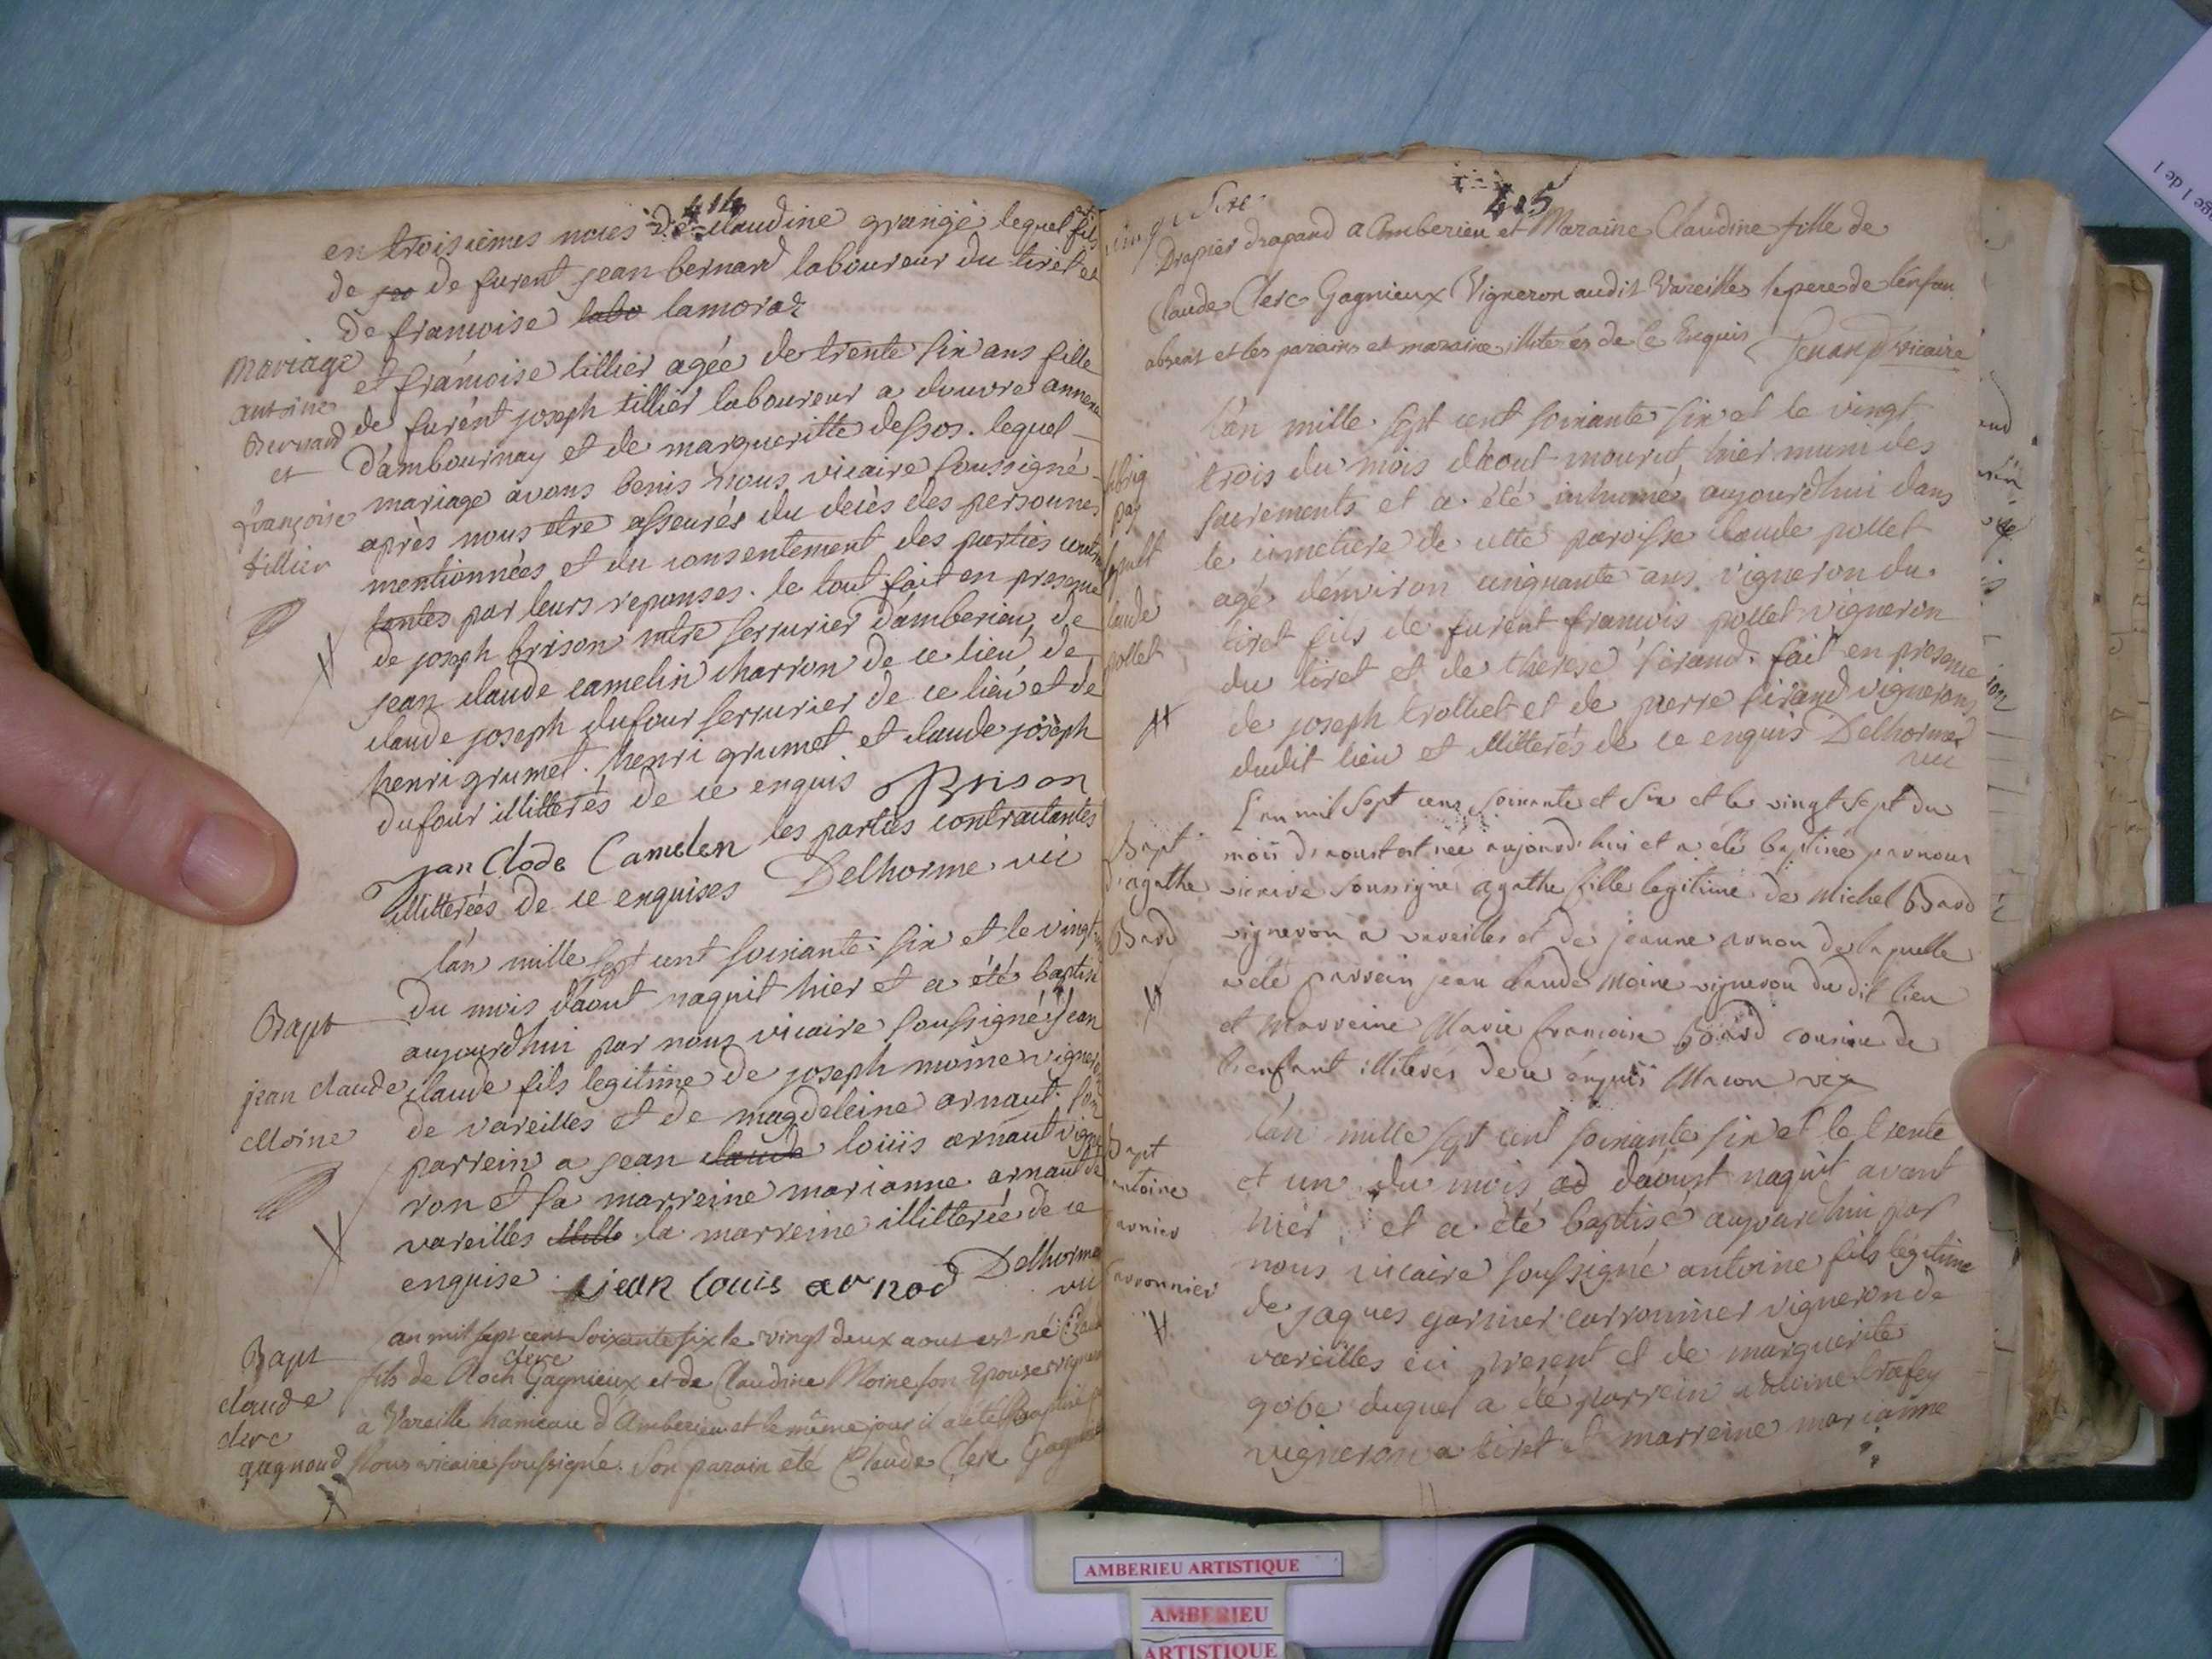 414
en troisièmes noces de claudine grangé lequel fils
de jeo de furent jean bernard laboureur du tiret et
de francoise labo lamoraz
Mariage
antoine
Bernard
et
françoise
tillier
et françoise tillier agée de trente six ans fille
de furent joseph tillier laboureur a douvre annexe
d'ambournay et de margueritte dessos. lequel
mariage avons benis nous vicaire soussigné
après nous etre asseurés du decès des personnes
mentionnées et du consentement des parties contra
tantes par leurs reponses. le tout fait en presence
de joseph brison mtre serrurier d'amberieu, de
jean claude camelin charron de ce lieu de
claude joseph dufour serrurier de ce lieu et de
henri grumet. henri grumet et claude joseph
dufour illitterés de ce enquis Brison
jan Clode Camelen les parties contractantes
illitterées de ce enquises Delhorme vic
Bapt
jean claude
Moine
l'an mille sept cent soixante six et le vingt
du mois d'aout naquit hier et a été baptisé
aujourdhui par nous vicaire soussigné jean
claude fils legitime de joseph moine vigneron
de vareilles et de magdeleine arnaut. son
parrein a jean claude louis arnaut vigne
ron et sa marreine marianne arnaut de
vareilles illitt la marreine illitterée de ce
enquise. jean louis arnod Delhorme
vic
Bapt
claude
clerc
gagnoud
an mil sept cent soixante six le vingt deux aout est né Claude
clerc
fils de Roch Gagnieux et de Claudine Moine son Epouse vigneron
a Vareille hameau d'Amberieu et le même jour il a eté Baptisé p
Nous vicaire soussigné. Son parain eté Claude Clerc Gagnieux
415
Drapier drapand a Amberieu et Maraine Claudine fille de
Claude Clerc Gagnieux Vigneron audit Vareilles le pere de l'enfan
absent et les parains et maraine illiterés de ce Enquis vicaire
pay
sepult
laude
pollet
l'an mille sept cent soixante six et le vingt
trois du mois d'aout mourut hier muni des
sacrements et a été inhumé aujourdhui dans
le cimetiere de cette paroisse claude pollet
agé d'environ cinquante ans vigneron du
tiret fils de furent francois pollet vigneron
du tiret et de therese sirand. fait en presence
de joseph trolliet et de pierre sirand vignerons
dudit lieu et illitterés de ce enquis Delhorme
vic
Bapt
d'agathe
Bard
L'an mil sept cent soixante et six et le vingt sept du
mois d'aoust est née aujourd'hui et a été baptisée par nous
vicaire soussigné agathe fille legitime de Michel Bard
vigneron a vareilles et de jeanne arnou de laquelle
a été parrein jean claude Moine vigneron du dit lieu
et Marreine Marie francoise Board cousine de
l'enfant illiterés de ce enquis Macon vic
Bapt
antoine
garnier
carronnier
l'an mille sept cent soixante six et le trente
et un du mois ad daoust naquit avant
hier, et a été baptisé aujourdhui par
nous vicaire soussigné antoine fils légitime
de jaques garnier carronnier vigneron de
vareilles ici present et de marguerite
gobe duquel a été parrein antoine trafey
vigneron a tiret et marreine marianne
AMBERIEU ARTISTIQUE
AMBERIEU
ARTISTIQUE